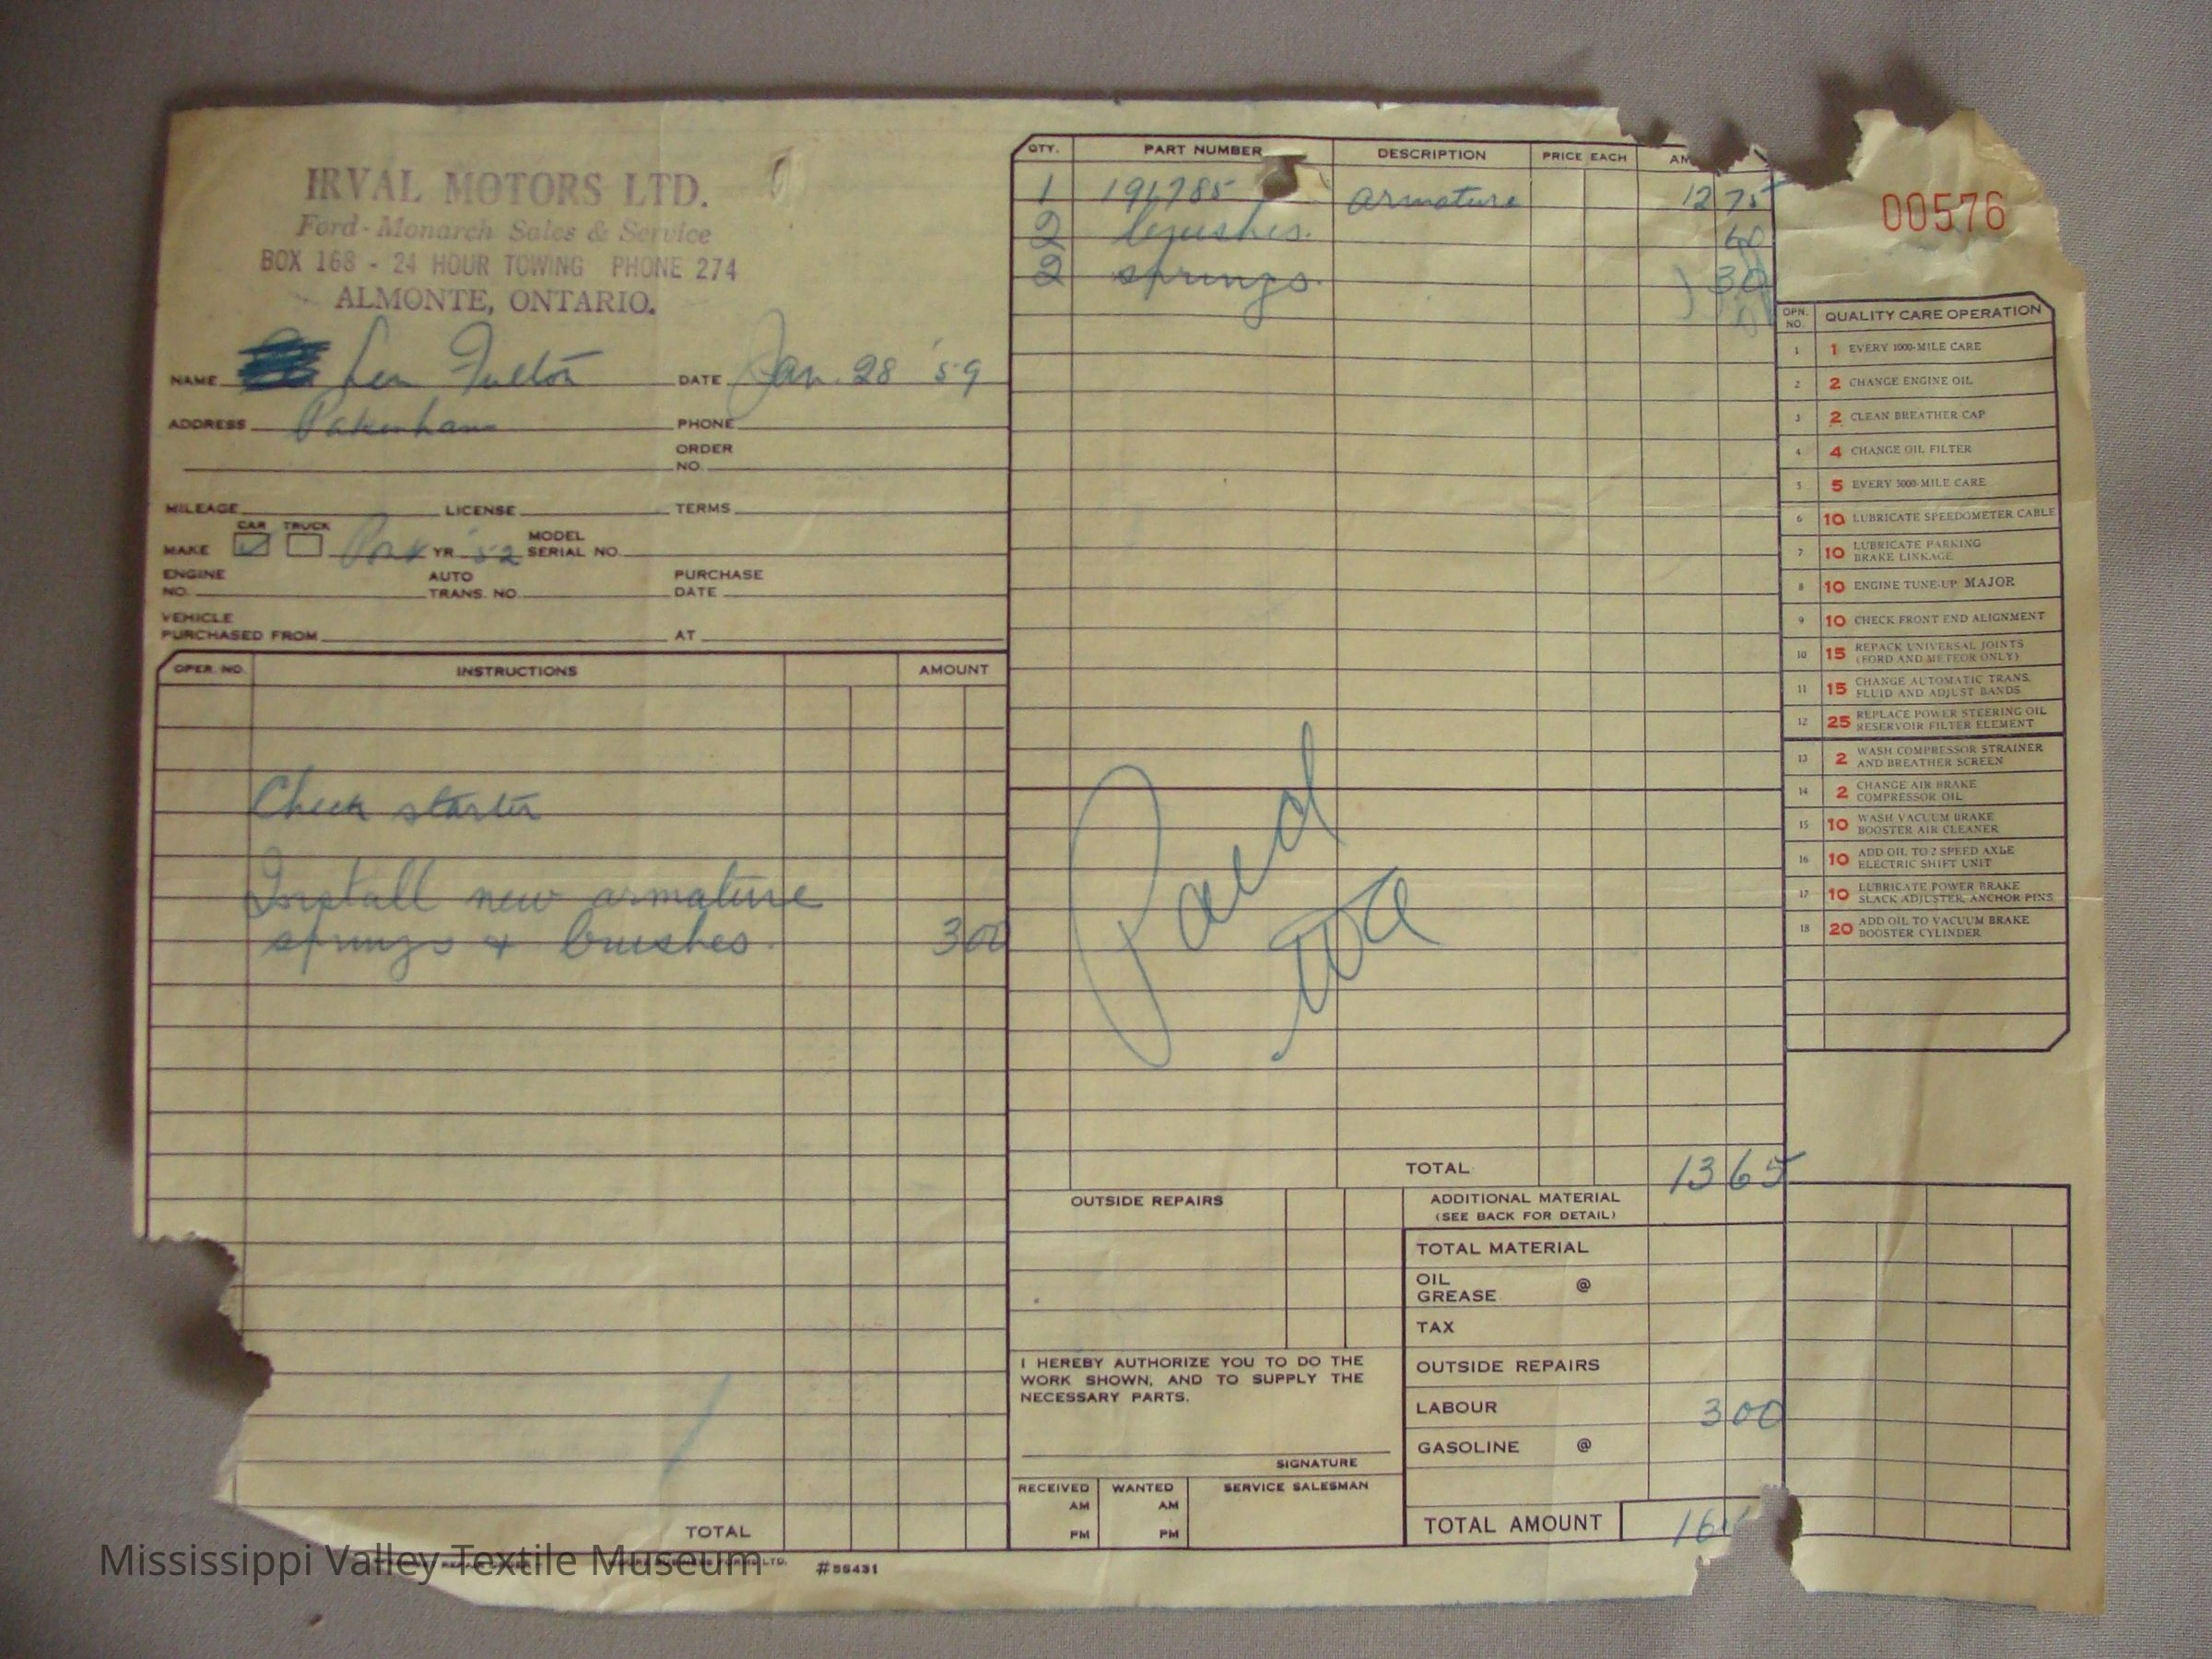 IRVAL MOTORS LTD.
Ford-Monarch Sales & Service
BOX 168 - 24 HOUR TOWING PHONE 274
ALMONTE, ONTARIO.
NAME Len Fulton DATE Jan. 28 '59
ADDRESS Pakenham PHONE
ORDER NO.
MILEAGE LICENSE TERMS
CAR TRUCK
MAKE YR '52 MODEL SERIAL NO.
ENGINE NO. AUTO TRANS. NO. PURCHASE DATE
VEHICLE PURCHASED FROM AT
OPER. NO. INSTRUCTIONS AMOUNT
Check starter
Install new armature
springs & brushes. 3 00
TOTAL
#56431
QTY. PART NUMBER DESCRIPTION PRICE EACH
1 196785 armature 12 75
2 brushes. 60
2 springs. 30
Paid
TOTAL 13 65
OUTSIDE REPAIRS
ADDITIONAL MATERIAL
(SEE BACK FOR DETAIL)
TOTAL MATERIAL
OIL
GREASE @
TAX
OUTSIDE REPAIRS
LABOUR 3 00
GASOLINE @
TOTAL AMOUNT 16
I HEREBY AUTHORIZE YOU TO DO THE
WORK SHOWN, AND TO SUPPLY THE
NECESSARY PARTS.
SIGNATURE
RECEIVED WANTED SERVICE SALESMAN
AM AM
PM PM
00576
OPN. NO. QUALITY CARE OPERATION
1 1 EVERY 1000-MILE CARE
2 2 CHANGE ENGINE OIL
3 2 CLEAN BREATHER CAP
4 4 CHANGE OIL FILTER
5 5 EVERY 5000-MILE CARE
6 10 LUBRICATE SPEEDOMETER CABLE
7 10 LUBRICATE PARKING
BRAKE LINKAGE
8 10 ENGINE TUNE-UP: MAJOR
9 10 CHECK FRONT END ALIGNMENT
10 15 REPACK UNIVERSAL JOINTS
(FORD AND METEOR ONLY)
11 15 CHANGE AUTOMATIC TRANS.
FLUID AND ADJUST BANDS
12 25 REPLACE POWER STEERING OIL
RESERVOIR FILTER ELEMENT
13 2 WASH COMPRESSOR STRAINER
AND BREATHER SCREEN
14 2 CHANGE AIR BRAKE
COMPRESSOR OIL
15 10 WASH VACUUM BRAKE
BOOSTER AIR CLEANER
16 10 ADD OIL TO 2 SPEED AXLE
ELECTRIC SHIFT UNIT
17 10 LUBRICATE POWER BRAKE
SLACK ADJUSTER, ANCHOR PINS
18 20 ADD OIL TO VACUUM BRAKE
BOOSTER CYLINDER
Mississippi Valley Textile Museum